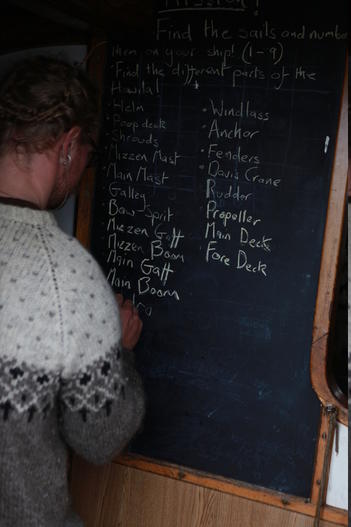 Mission!
Find the sails and number
them on your ship! (1-9)
• Find the different parts of the
Hawila!
• Helm
• Poop deck
• Shrouds
• Mizzen Mast
• Main Mast
• Galley
• Bow Sprit
• Mizzen Gaff
• Mizzen Boom
• Main Gaff
• Main Boom
• Windlass
• Anchor
• Fenders
• Davis Crane
Ruddor
Propeller
• Main Deck
• Fore Deck